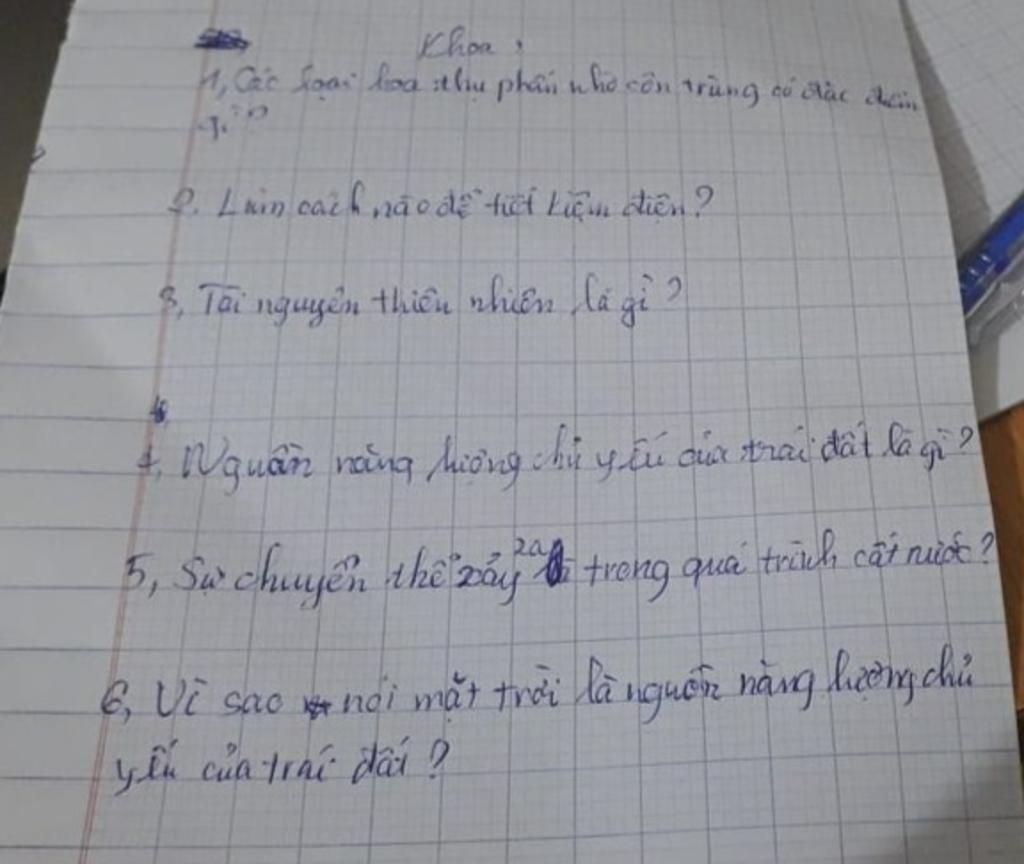 Khoa :
1, Các loại hoa thụ phấn nhờ côn trùng có đặc điểm
gì ?
2. Làm cách nào để tiết kiệm điện ?
3, Tài nguyên thiên nhiên là gì ?
4, Nguồn năng lượng chủ yếu của trái đất là gì ?
5, Sự chuyển thể xảy ra trong quá trình cất nước ?
6, Vì sao nói mặt trời là nguồn năng lượng chủ
yếu của trái đất ?